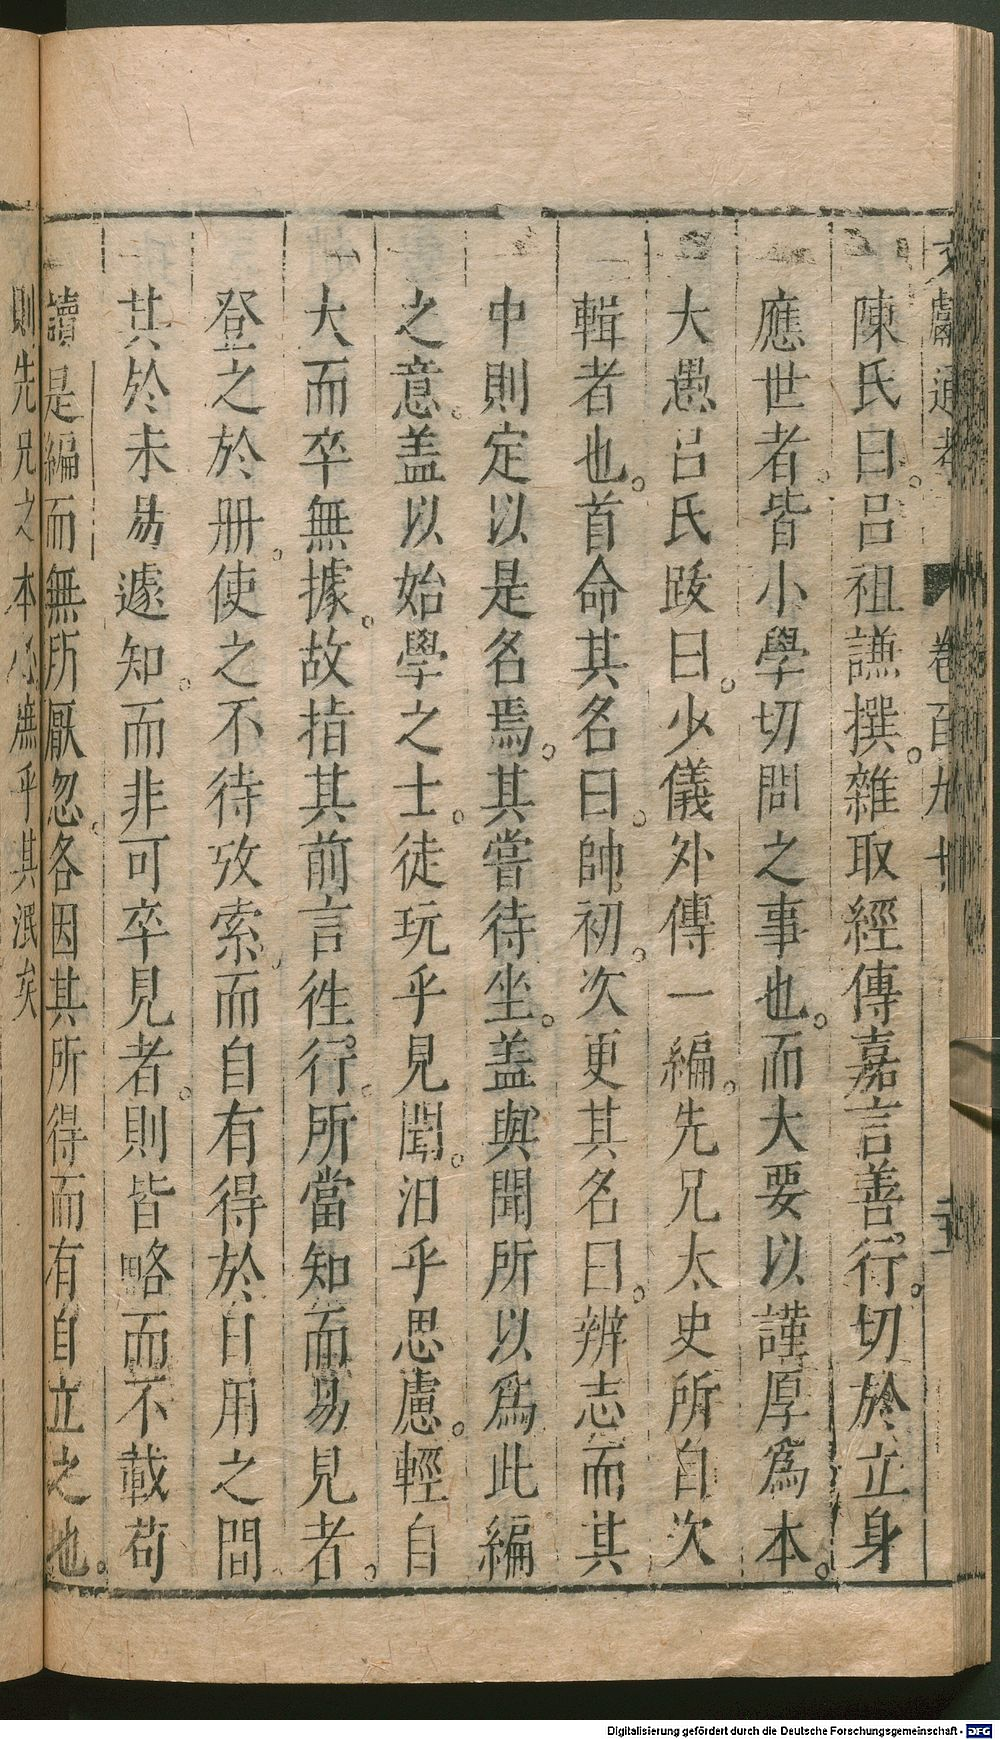 文獻通考 卷百九十
陳氏曰。呂祖謙撰。雜取經傳嘉言善行。切於立身
應世者。皆小學切問之事也。而大要以謹厚爲本。
大愚呂氏跋曰。少儀外傳一編。先兄太史所自次
輯者也。首命其名曰。帥初。次更其名曰。辨志而其
中則定以是名焉。其嘗待坐。盖與聞所以爲此編
之意。盖以始學之士。徒玩乎見聞。汨乎思慮。輕自
大而卒無據。故指其前言徃行。所當知而易見者。
登之於册。使之不待攷索。而自有得於日用之間
其於未易遽知。而非可卒見者。則皆略而不載苟
讀是編而無所厭忽。各因其所得而有自立之地。
則先兄之本心庶乎其泯矣
Digitalisierung gefördert durch die Deutsche Forschungsgemeinschaft - DFG